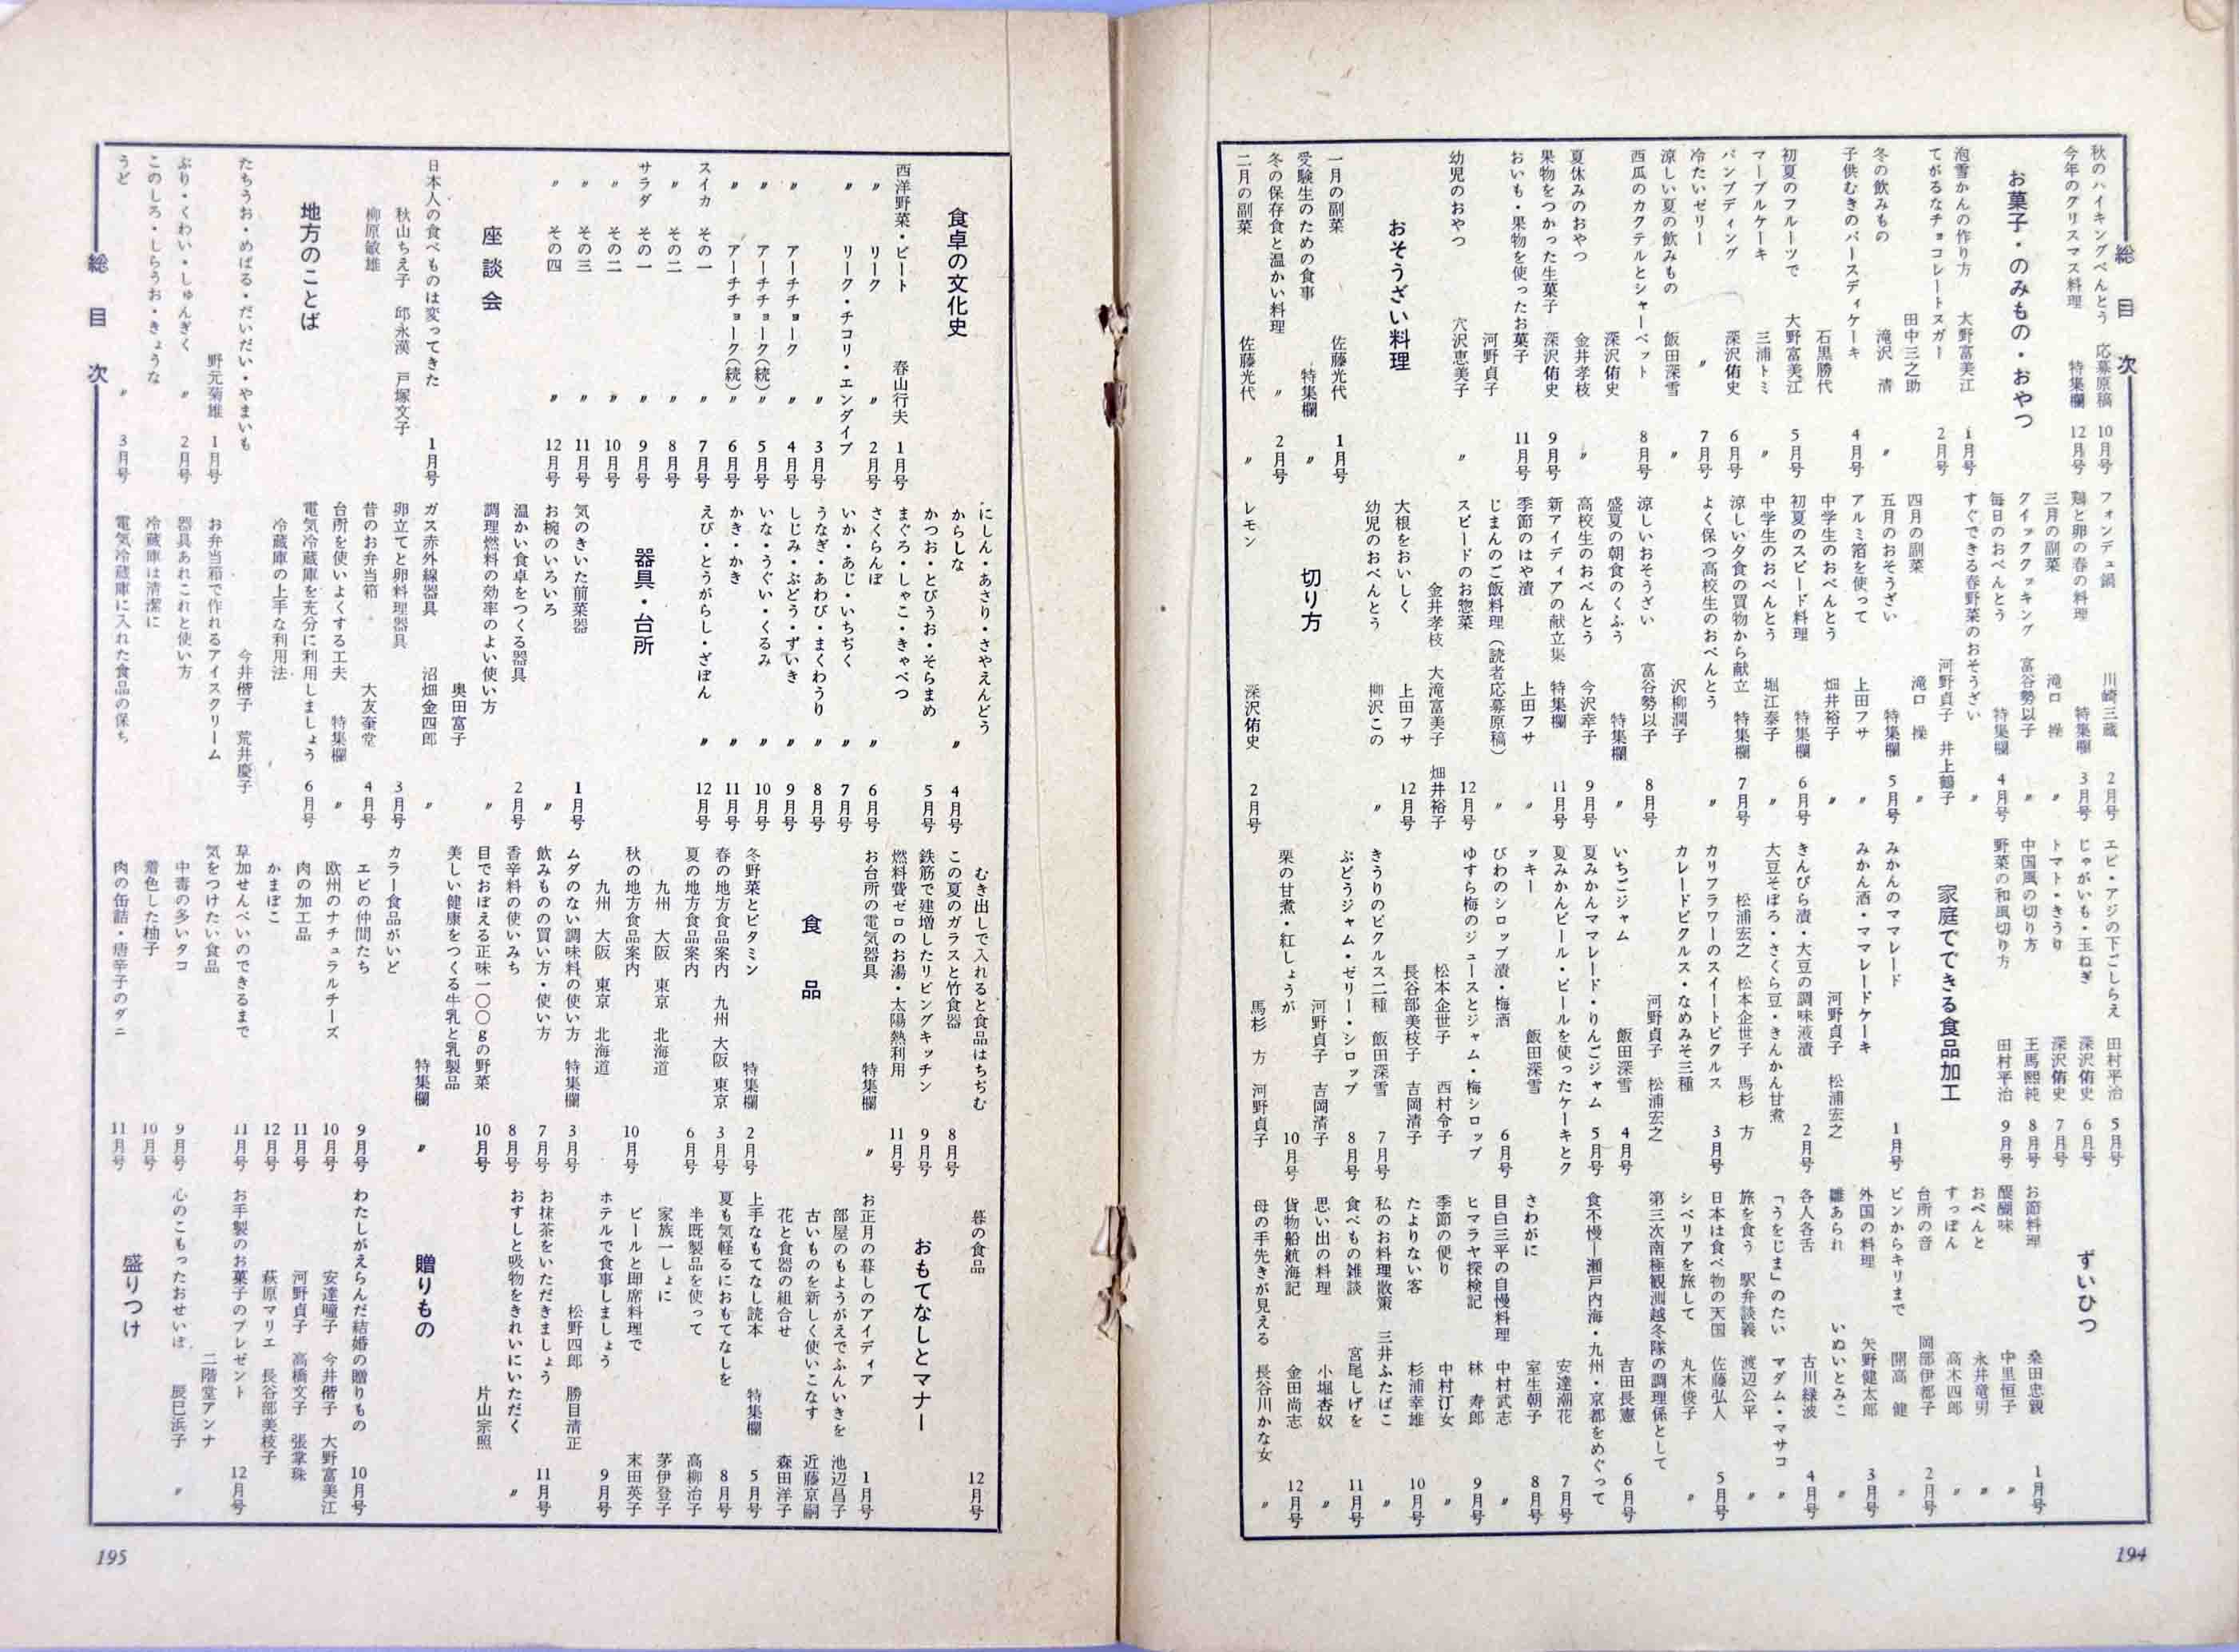 総目次
秋のハイキングべんとう 応募原稿 10月号
今年のクリスマス料理 特集欄 12月号
お菓子・のみもの・おやつ
泡雪かんの作り方 大野富美江 1月号
てがるなチョコレートスガー
田中三之助 2月号
冬の飲みもの 滝沢 清 〃
子供むきのバースディケーキ
石黒勝代 4月号
初夏のフルーツで 大野富美江 5月号
マーブルケーキ 三浦トミ 〃
パンプディング 深沢侑史 6月号
冷たいゼリー 〃 7月号
涼しい夏の飲みもの 飯田深雪 〃
西瓜のカクテルとシャーベット
深沢侑史 8月号
夏休みのおやつ 金井孝枝 〃
果物をつかった生菓子 深沢侑史 9月号
おいも・果物を使ったお菓子
河野貞子 11月号
幼児のおやつ 穴沢恵美子 〃
おそうざい料理
一月の副菜 佐藤光代 1月号
受験生のための食事 特集欄 〃
冬の保存食と温かい料理 〃 2月号
二月の副菜 佐藤光代 〃
フォンデュ鍋 川崎三蔵 2月号
鶏と卵の春の料理 特集欄 3月号
三月の副菜 滝口 操 〃
クイッククッキング 富谷勢以子 〃
毎日のおべんとう 特集欄 4月号
すぐできる春野菜のおそうざい
河野貞子 井上鶴子 〃
四月の副菜 滝口 操 〃
五月のおそうざい 特集欄 5月号
アルミ箔を使って 上田フサ 〃
中学生のおべんとう 畑井裕子 〃
初夏のスピード料理 特集欄 6月号
中学生のおべんとう 堀江泰子 〃
涼しい夕食の買物から献立 特集欄 7月号
よく保つ高校生のおべんとう
沢柳潤子 〃
涼しいおそうざい 富谷勢以子 8月号
盛夏の朝食のくふう 特集欄 〃
高校生のおべんとう 今沢幸子 9月号
新アイディアの献立集 特集欄 11月号
季節のはや漬 上田フサ 〃
じまんのご飯料理（読者応募原稿） 〃
スピードのお惣菜 12月号
金井孝枝 大滝富美子 畑井裕子
大根をおいしく 上田フサ 12月号
幼児のおべんとう 柳沢この 〃
切り方
レモン 深沢侑史 2月号
エビ・アジの下ごしらえ 田村平治 5月号
じゃがいも・玉ねぎ 深沢侑史 6月号
トマト・きうり 深沢侑史 7月号
中国風の切り方 王馬熙純 8月号
野菜の和風切り方 田村平治 9月号
家庭でできる食品加工
みかんのママレード 1月号
みかん酒・ママレードケーキ
河野貞子 松浦宏之
きんぴら漬・大豆の調味液漬 2月号
大豆そぼろ・さくら豆・きんかん甘煮
松浦宏之 松本企世子 馬杉 方
カリフラワーのスイートピクルス 3月号
カレードピクルス・なめみそ三種
河野貞子 松浦宏之
いちごジャム 飯田深雪 4月号
夏みかんママレード・りんごジャム 5月号
夏みかんピール・ピールを使ったケーキとク
ッキー 飯田深雪
びわのシロップ漬・梅酒 6月号
ゆすら梅のジュースとジャム・梅シロップ
松本企世子 西村令子
長谷部美枝子 吉岡清子
きうりのピクルス二種 飯田深雪 7月号
ぶどうジャム・ゼリー・シロップ 8月号
河野貞子 吉岡清子
栗の甘煮・紅しょうが 10月号
馬杉 方 河野貞子
ずいひつ
お節料理 桑田忠親 1月号
醍醐味 中里恒子 〃
おべんと 永井竜男 〃
すっぽん 高木四郎 〃
台所の音 岡部伊都子 2月号
ピンからキリまで 開高 健 〃
外国の料理 矢野健太郎 3月号
雛あられ いぬいとみこ 〃
各人各舌 古川緑波 4月号
「うをじま」のたい マダム・マサコ 〃
旅を食う 駅弁談義 渡辺公平 〃
日本は食べ物の天国 佐藤弘人 5月号
シベリアを旅して 丸木俊子 〃
第三次南極観測越冬隊の調理係として
吉田長憲 6月号
食不慢―瀬戸内海・九州・京都をめぐって
安達潮花 7月号
さわがに 室生朝子 8月号
目白三平の自慢料理 中村武志 〃
ヒマラヤ探検記 林 寿郎 9月号
季節の便り 中村汀女 〃
たよりない客 杉浦幸雄 10月号
私のお料理散策 三井ふたばこ 〃
食べもの雑談 宮尾しげを 11月号
思い出の料理 小堀杏奴 〃
貨物船航海記 金田尚志 12月号
母の手先きが見える 長谷川かな女 〃
194
食卓の文化史
西洋野菜・ビート 春山行夫 1月号
〃 リーク 〃 2月号
〃 リーク・チコリ・エンダイブ
〃 3月号
〃 アーチチョーク 〃 4月号
〃 アーチチョーク(続) 〃 5月号
〃 アーチチョーク(続) 〃 6月号
スイカ その一 〃 7月号
〃 その二 〃 8月号
サラダ その一 〃 9月号
〃 その二 〃 10月号
〃 その三 〃 11月号
〃 その四 〃 12月号
座談会
日本人の食べものは変ってきた 1月号
秋山ちえ子 邱永漢 戸塚文子
柳原敏雄
地方のことば
たちうお・めばる・だいだい・やまいも
野元菊雄 1月号
ぶり・くわい・しゅんぎく 〃 2月号
このしろ・しらうお・きょうな
うど 〃 3月号
にしん・あさり・さやえんどう
からしな 〃 4月号
かつお・とびうお・そらまめ 5月号
まぐろ・しゃこ・きゃべつ
さくらんぼ 〃 6月号
いか・あじ・いちぢく 〃 7月号
うなぎ・あわび・まくわうり 〃 8月号
しじみ・ぶどう・ずいき 〃 9月号
いな・うぐい・くるみ 〃 10月号
かき・かき 〃 11月号
えび・とうがらし・ざぼん 〃 12月号
器具・台所
気のきいた前菜器 1月号
お椀のいろいろ 〃
温かい食卓をつくる器具 2月号
調理燃料の効率のよい使い方 〃
奥田富子
ガス赤外線器具 沼畑金四郎 〃
卵立てと卵料理器具 3月号
昔のお弁当箱 大友奎堂 4月号
台所を使いよくする工夫 特集欄 〃
電気冷蔵庫を充分に利用しましょう 6月号
冷蔵庫の上手な利用法
今井楷子 荒井慶子
お弁当箱で作れるアイスクリーム
器具あれこれと使い方
冷蔵庫は清潔に
電気冷蔵庫に入れた食品の保ち
むき出しで入れると食品はちぢむ
この夏のガラスと竹食器 8月号
鉄筋で建増したリビングキッチン 9月号
燃料費ゼロのお湯・太陽熱利用 11月号
お台所の電気器具 特集欄 〃
食品
冬野菜とビタミン 特集欄 2月号
春の地方食品案内 九州 大阪 東京 3月号
夏の地方食品案内 6月号
九州 大阪 東京 北海道
秋の地方食品案内 10月号
九州 大阪 東京 北海道
ムダのない調味料の使い方 特集欄 3月号
飲みものの買い方・使い方 7月号
香辛料の使いみち 8月号
目でおぼえる正味一〇〇gの野菜 10月号
美しい健康をつくる牛乳と乳製品
特集欄 〃
カラー食品がいど
エビの仲間たち 9月号
欧州のナチュラルチーズ 10月号
肉の加工品 11月号
かまぼこ 12月号
草加せんべいのできるまで 11月号
気をつけたい食品
中毒の多いタコ 9月号
着色した柚子 10月号
肉の缶詰・唐辛子のダニ 11月号
暮の食品 12月号
おもてなしとマナー
お正月の暮しのアイディア 1月号
部屋のもようがえでふんいきを 池辺昌子
古いものを新しく使いこなす 近藤京嗣
花と食器の組合せ 森田洋子
上手なもてなし読本 特集欄 5月号
夏も気軽るにおもてなしを 8月号
半既製品を使って 高柳治子
家族一しょに 茅伊登子
ビールと即席料理で 末田英子
ホテルで食事しましょう 9月号
松野四郎 勝目清正
お抹茶をいただきましょう 11月号
おすしと吸物をきれいにいただく 〃
片山宗照
贈りもの
わたしがえらんだ結婚の贈りもの 10月号
安達瞳子 今井楷子 大野富美江
河野貞子 高橋文子 張掌珠
萩原マリエ 長谷部美枝子
お手製のお菓子のプレゼント 12月号
二階堂アンナ
心のこもったおせいぼ 辰巳浜子 〃
盛りつけ
総目次
195